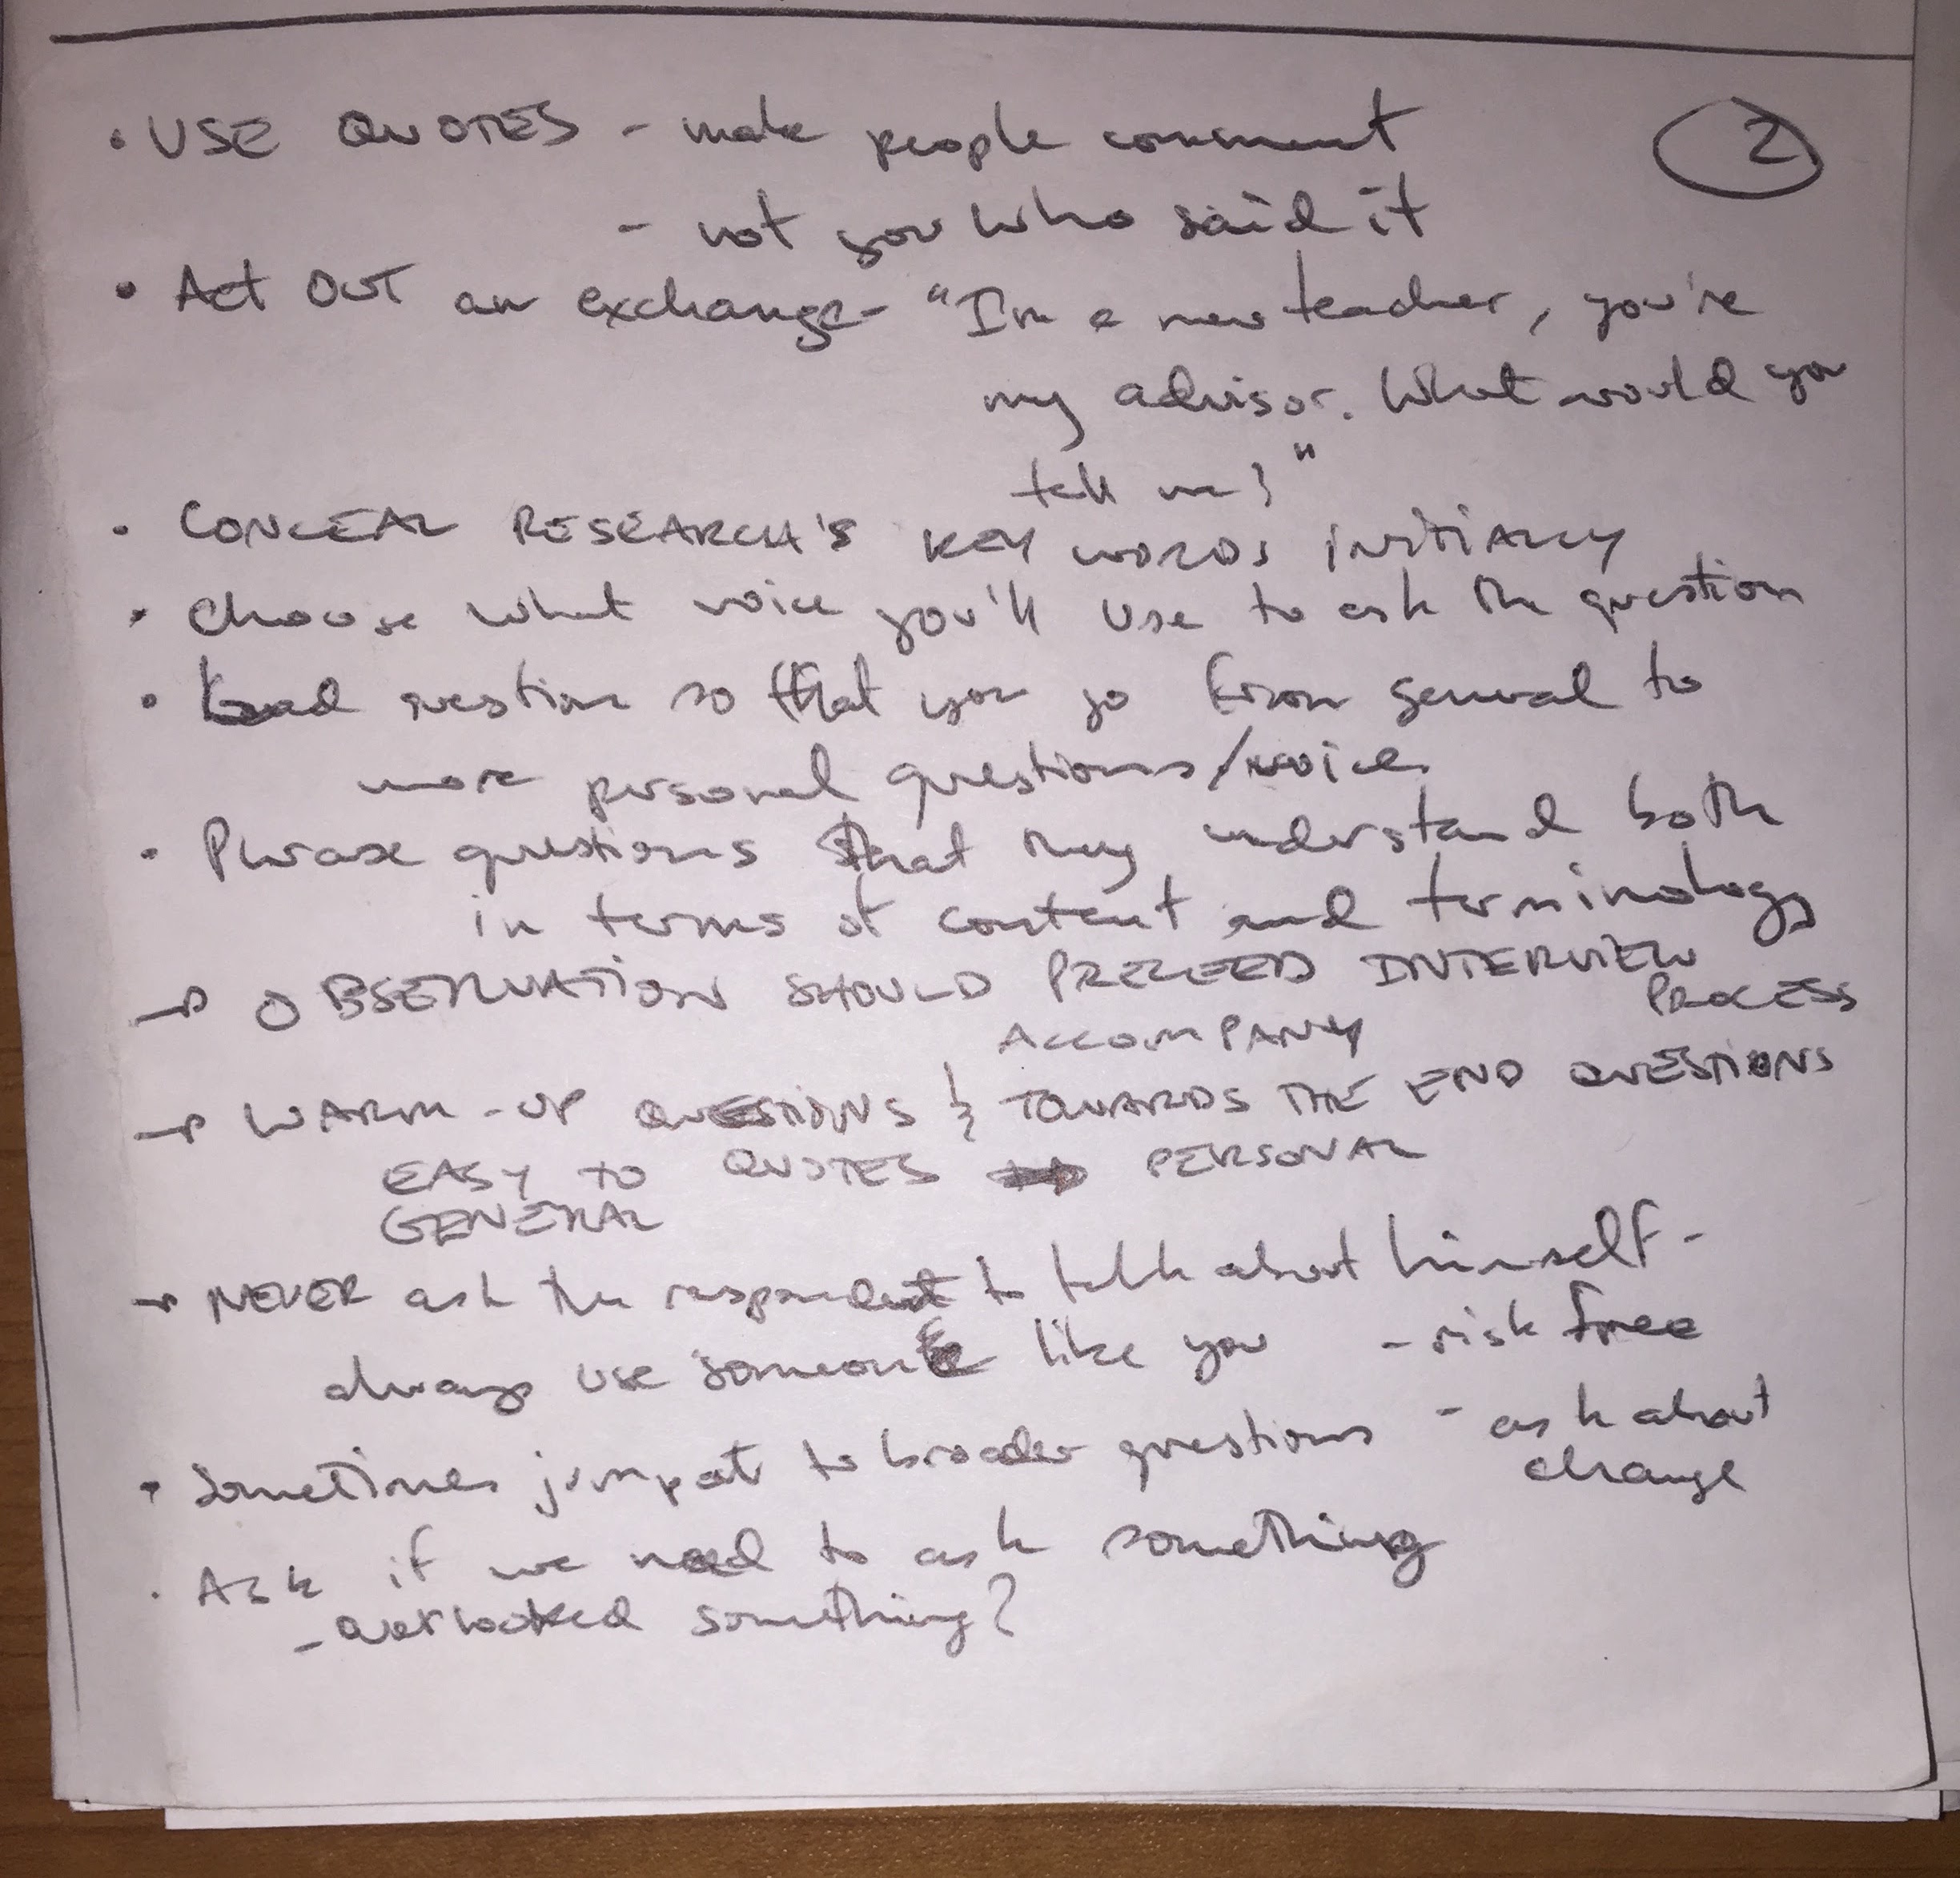 • USE QUOTES - make people comment
②
- not you who said it
• Act OUT an exchange - "I'm a new teacher, you're
my advisor. What would you
tell me?"
• CONCEAL RESEARCH'S KEY WORDS INITIALLY
• Choose what voice you'll use to ask the question
• Lead question so that you go from general to
more personal questions/voice
• Phrase questions that they understand both
in terms of content and terminology
→ OBSERVATION SHOULD PRECEED INTERVIEW
PROCESS
ACCOMPANY
→ WARM-UP QUESTIONS & TOWARDS THE END QUESTIONS
EASY TO QUOTES → PERSONAL
GENERAL
→ NEVER ask the respondent to talk about himself -
always use someone like you - risk free
• Sometimes jump to broader questions - ask about
change
• Ask if we need to ask something
- overlooked something?